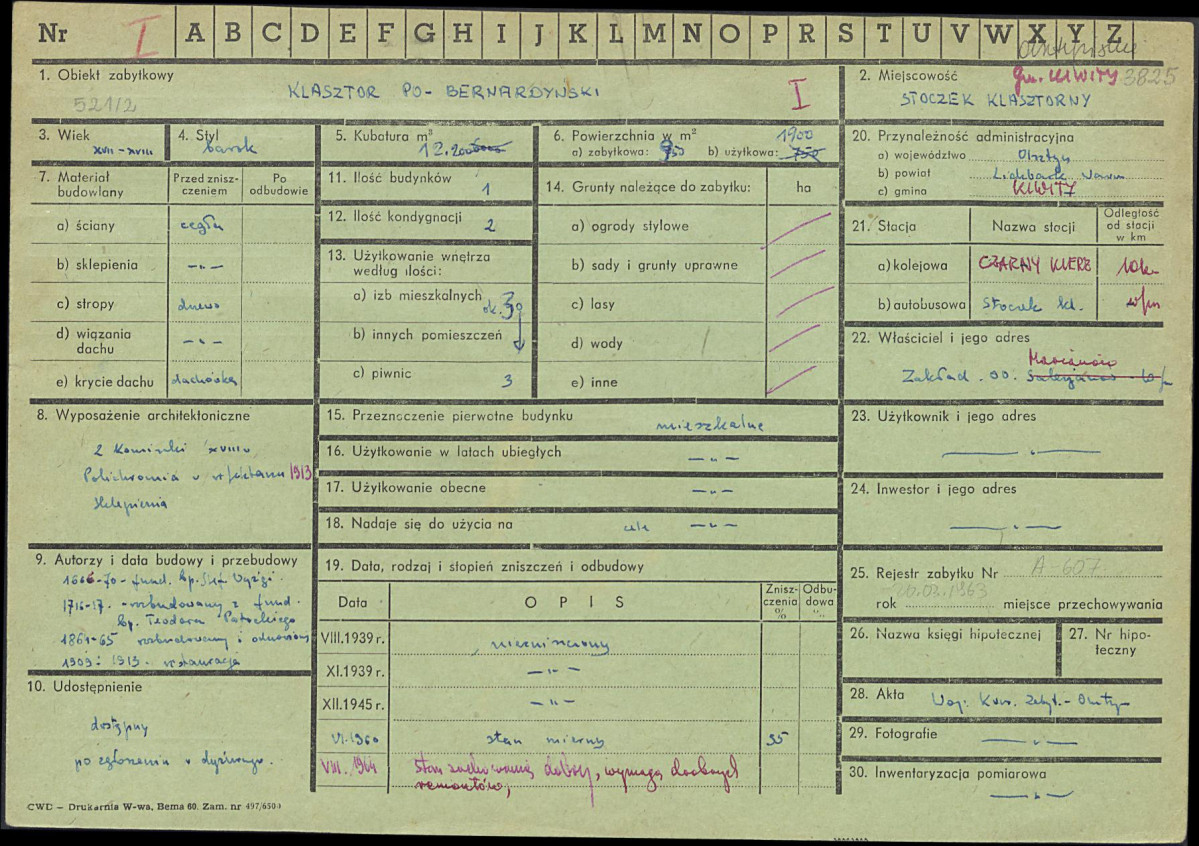 Nr I A B C D E F G H I J K L M N O P R S T U V W X Y Z
1. Obiekt zabytkowy
521/2
KLASZTOR PO-BERNARDYŃSKI I
2. Miejscowość gm. KIWITY 3825
STOCZEK KLASZTORNY
3. Wiek
XVII - XVIII
4. Styl
barok
5. Kubatura m³
12.200
6. Powierzchnia w m² 1900
a) zabytkowa: 950 b) użytkowa: 750
20. Przynależność administracyjna
a) województwo Olsztyn
b) powiat Lidzbark Warm
c) gmina KIWITY
7. Materiał budowlany
Przed zniszczeniem
Po odbudowie
a) ściany cegła
b) sklepienia —„—
c) stropy drewno
d) wiązania dachu —„—
e) krycie dachu dachówka
11. Ilość budynków 1
12. Ilość kondygnacji 2
13. Użytkowanie wnętrza według ilości:
a) izb mieszkalnych ok. 30
b) innych pomieszczeń
c) piwnic 3
14. Grunty należące do zabytku: ha
a) ogrody stylowe
b) sady i grunty uprawne
c) lasy
d) wody
e) inne
21. Stacja
Nazwa stacji
Odległość od stacji w km
a) kolejowa CZARNY KIERZ 10 km
b) autobusowa Stoczek kl. w/m
22. Właściciel i jego adres
Marianów
Zakład OO. Salezjanów - w/m
8. Wyposażenie architektoniczne
2 kominki XVIII w
Polichromia w refektarzu 1913
sklepienia
15. Przeznaczenie pierwotne budynku mieszkalne
16. Użytkowanie w latach ubiegłych —„—
17. Użytkowanie obecne —„—
18. Nadaje się do użycia na cele —„—
23. Użytkownik i jego adres
—„—
24. Inwestor i jego adres
—„—
9. Autorzy i data budowy i przebudowy
1666-70 - fund. bp. Stef Wydżgi
1716-17. - rozbudowany z fund.
bp. Teodora Potockiego
1861-65 rozbudowany i odnowiony
1909-1913. restauracja
19. Data, rodzaj i stopień zniszczeń i odbudowy
Data
OPIS
Zniszczenia %
Odbudowa %
VIII.1939 r. niezniszczony
XI.1939 r. —„—
XII.1945 r. —„—
VI.1960 stan mierny 35
VIII. 1964 Stan zachowania dobry, wymaga drobnych
remontów,
25. Rejestr zabytku Nr A-607
20.03.1963
rok miejsce przechowywania
26. Nazwa księgi hipotecznej
27. Nr hipoteczny
10. Udostępnienie
dostępny
po zgłoszeniu u dyżurnego.
28. Akta Woj. Kons. Zabyt. - Olsztyn
29. Fotografie —„—
30. Inwentaryzacja pomiarowa
—„—
CWD – Drukarnia W-wa, Bema 60. Zam. nr 497/6500